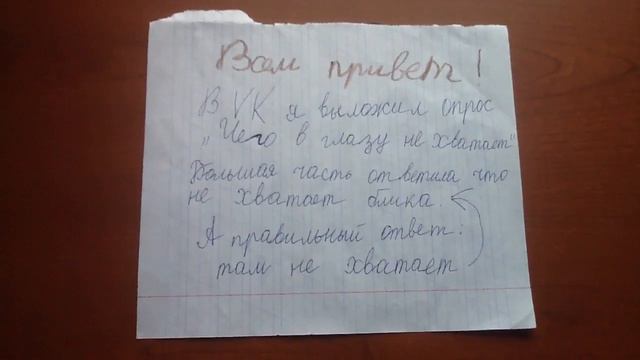 Вам привет!
В VK я выложил опрос
„Чего в глазу не хватает"
Большая часть ответила что
не хватает блика.
А правильный ответ:
там не хватает